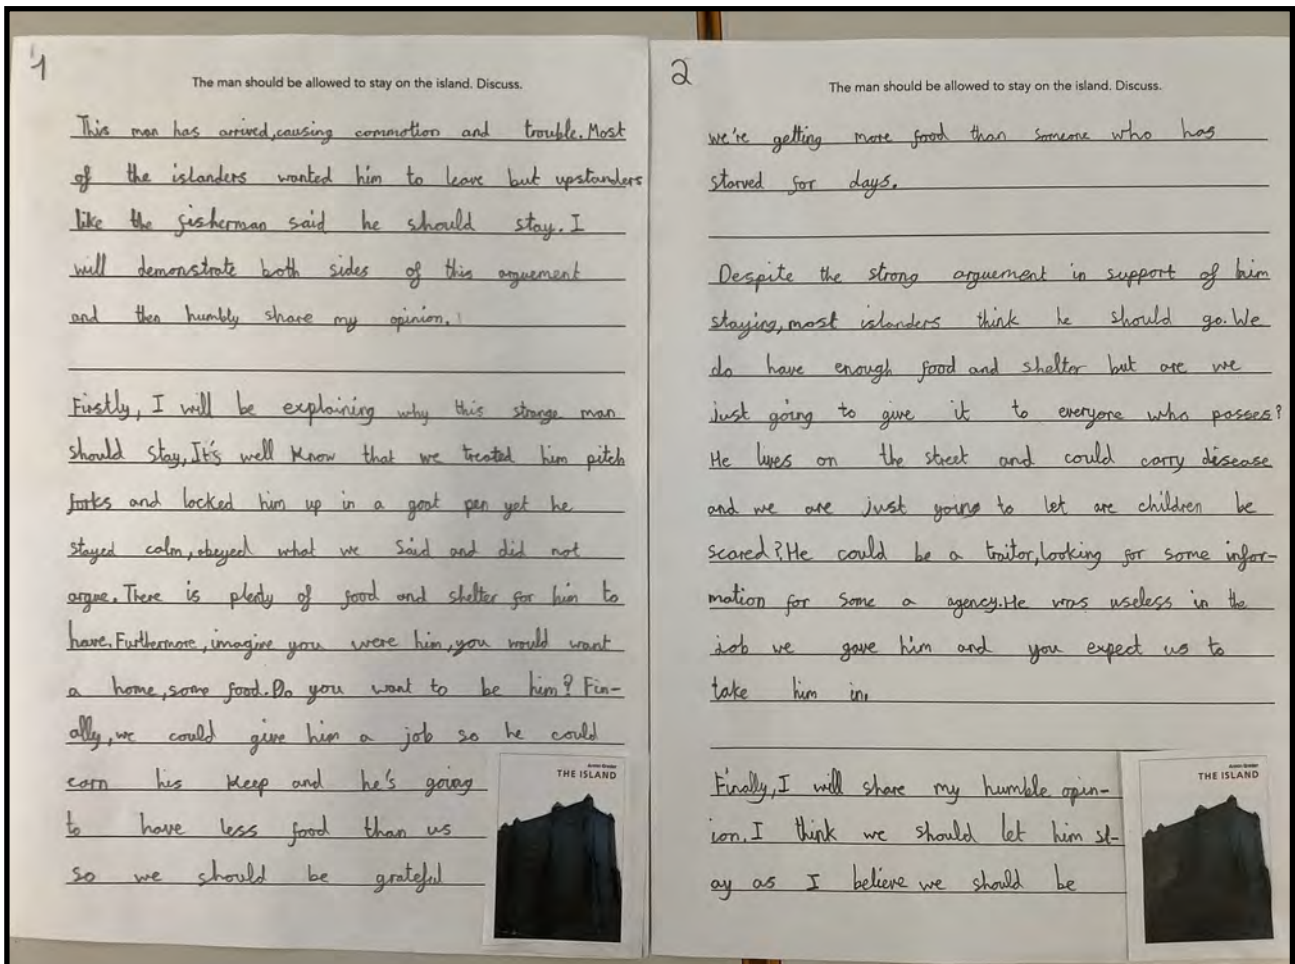 1
The man should be allowed to stay on the island. Discuss.
This man has arrived,causing commotion and trouble.Most
of the islanders wanted him to leave but upstanders
like the fisherman said he should stay.I
will demonstrate both sides of this arguement
and then humbly share my opinion.
Firstly, I will be explaining why this strange man
should stay,It's well know that we treated him pitch
forks and locked him up in a goat pen yet he
stayed calm,obeyed what we said and did not
argue.There is plenty of food and shelter for him to
have.Furthermore,imagine you were him,you would want
a home,some food.Do you want to be him? Fin-
ally,we could give him a job so he could
earn his keep and he's going
to have less food than us
so we should be grateful
THE ISLAND
2
The man should be allowed to stay on the island. Discuss.
we're getting more food than someone who has
starved for days.
Despite the strong arguement in support of him
staying,most islanders think he should go.We
do have enough food and shelter but are we
just going to give it to everyone who passes?
He lives on the street and could carry disease
and we are just going to let are children be
scared?He could be a traitor,looking for some infor-
mation for some a agency.He was useless in the
job we gave him and you expect us to
take him in.
Finally,I will share my humble opin-
ion.I think we should let him st-
ay as I believe we should be
THE ISLAND